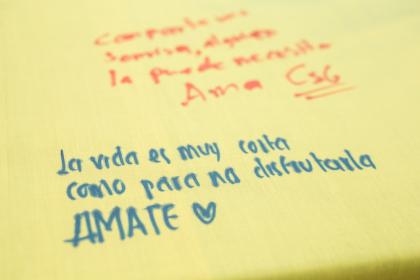 Comparte una
sonrisa, alguien
la puede necesitar
Ama CSG
La vida es muy corta
como para no disfrutarla
AMATE